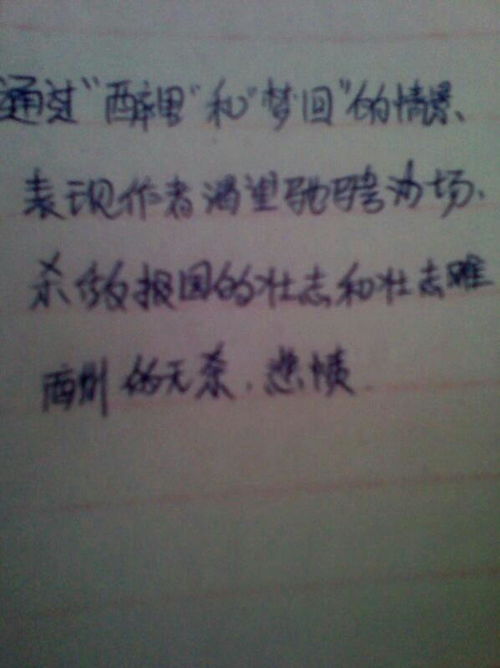 通过"醉里"和"梦回"的情景、
表现作者渴望驰骋沙场、
杀敌报国的壮志和壮志难
酬的无奈、悲愤.